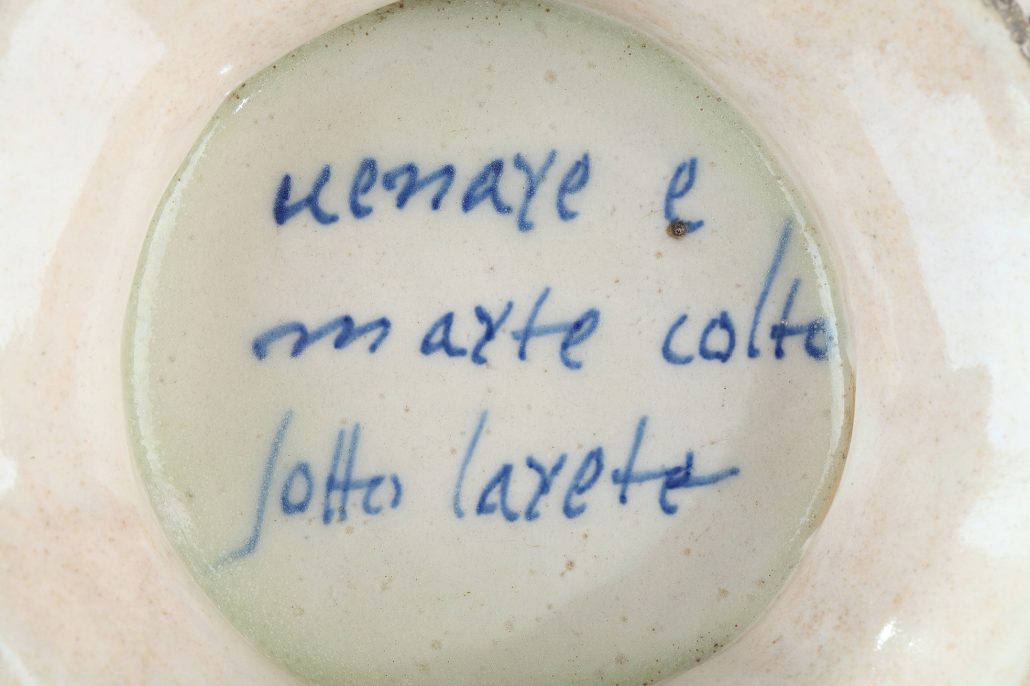 uenare e
marte colto
sotto larete